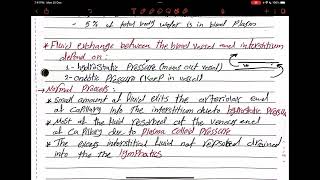 7:41 PM Wed 25 Dec
- 5% of total body water is in blood Plasm
* Fluid exchange between the blood vessel and interstitium
defend on:
1- hydrostatic Pressure (moves out vessel)
2- oncotic Pressure (keep in vessel)
→ Normal Process:
* Small amount of fluid exits the arteriolar end
of capillary into the interstitium due to hydrostatic Pressure
* Most of the fluid resorbed at the venous end
of Capillary due to plasma colloid Pressure
* The excess interstitial fluid not resorbed drained
into the the lymphatics